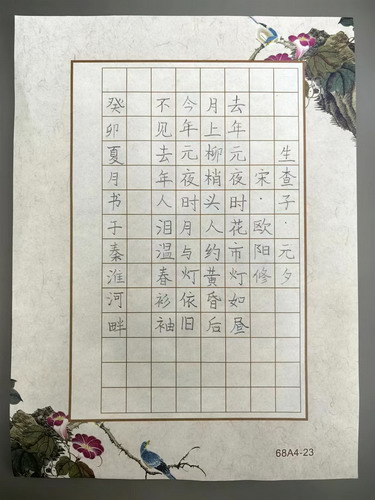 生查子·元夕
宋·欧阳修
去年元夜时花市灯如昼
月上柳梢头人约黄昏后
今年元夜时月与灯依旧
不见去年人泪温春衫袖
癸卯夏月书于秦淮河畔
68A4-23